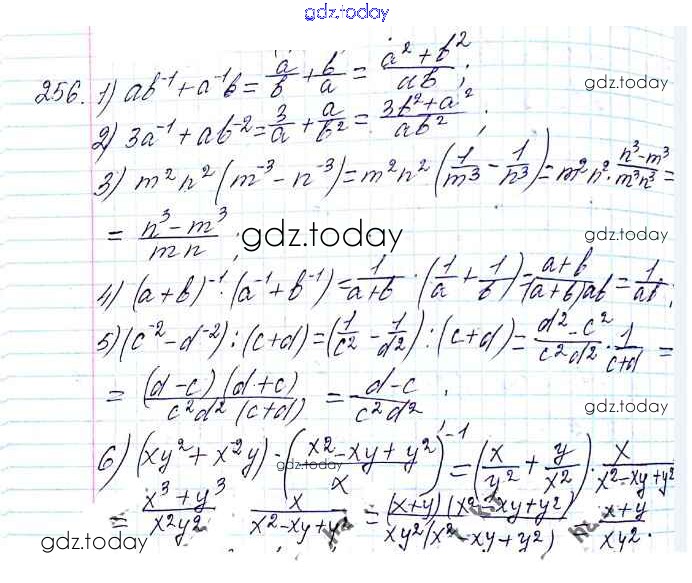 gdz.today
256. 1) ab⁻¹ + a⁻¹b = a/b + b/a = (a² + b²)/(ab);
gdz.today
2) 3a⁻¹ + ab⁻² = 3/a + a/b² = (3b² + a²)/(ab²);
3) m²n²(m⁻³ − n⁻³) = m²n²(1/m³ − 1/n³) = m²n² · (n³ − m³)/(m³n³) =
= (n³ − m³)/(mn);
gdz.today
gdz.today
4) (a + b)⁻¹ · (a⁻¹ + b⁻¹) = 1/(a + b) · (1/a + 1/b) = (a + b)/((a + b)ab) = 1/(ab);
5) (c⁻² − d⁻²) : (c + d) = (1/c² − 1/d²) : (c + d) = (d² − c²)/(c²d²) · 1/(c + d) =
= ((d − c)(d + c))/(c²d²(c + d)) = (d − c)/(c²d²);
gdz.today
6) (xy² + x⁻²y) · ((x² − xy + y²)/x)⁻¹ = (x/y² + y/x²) · x/(x² − xy + y²)
= (x³ + y³)/(x²y²) x/(x² − xy + y²) = ((x + y)(x² − xy + y²))/(xy²(x² − xy + y²)) = (x + y)/(xy²).
gdz.today
gdz.today